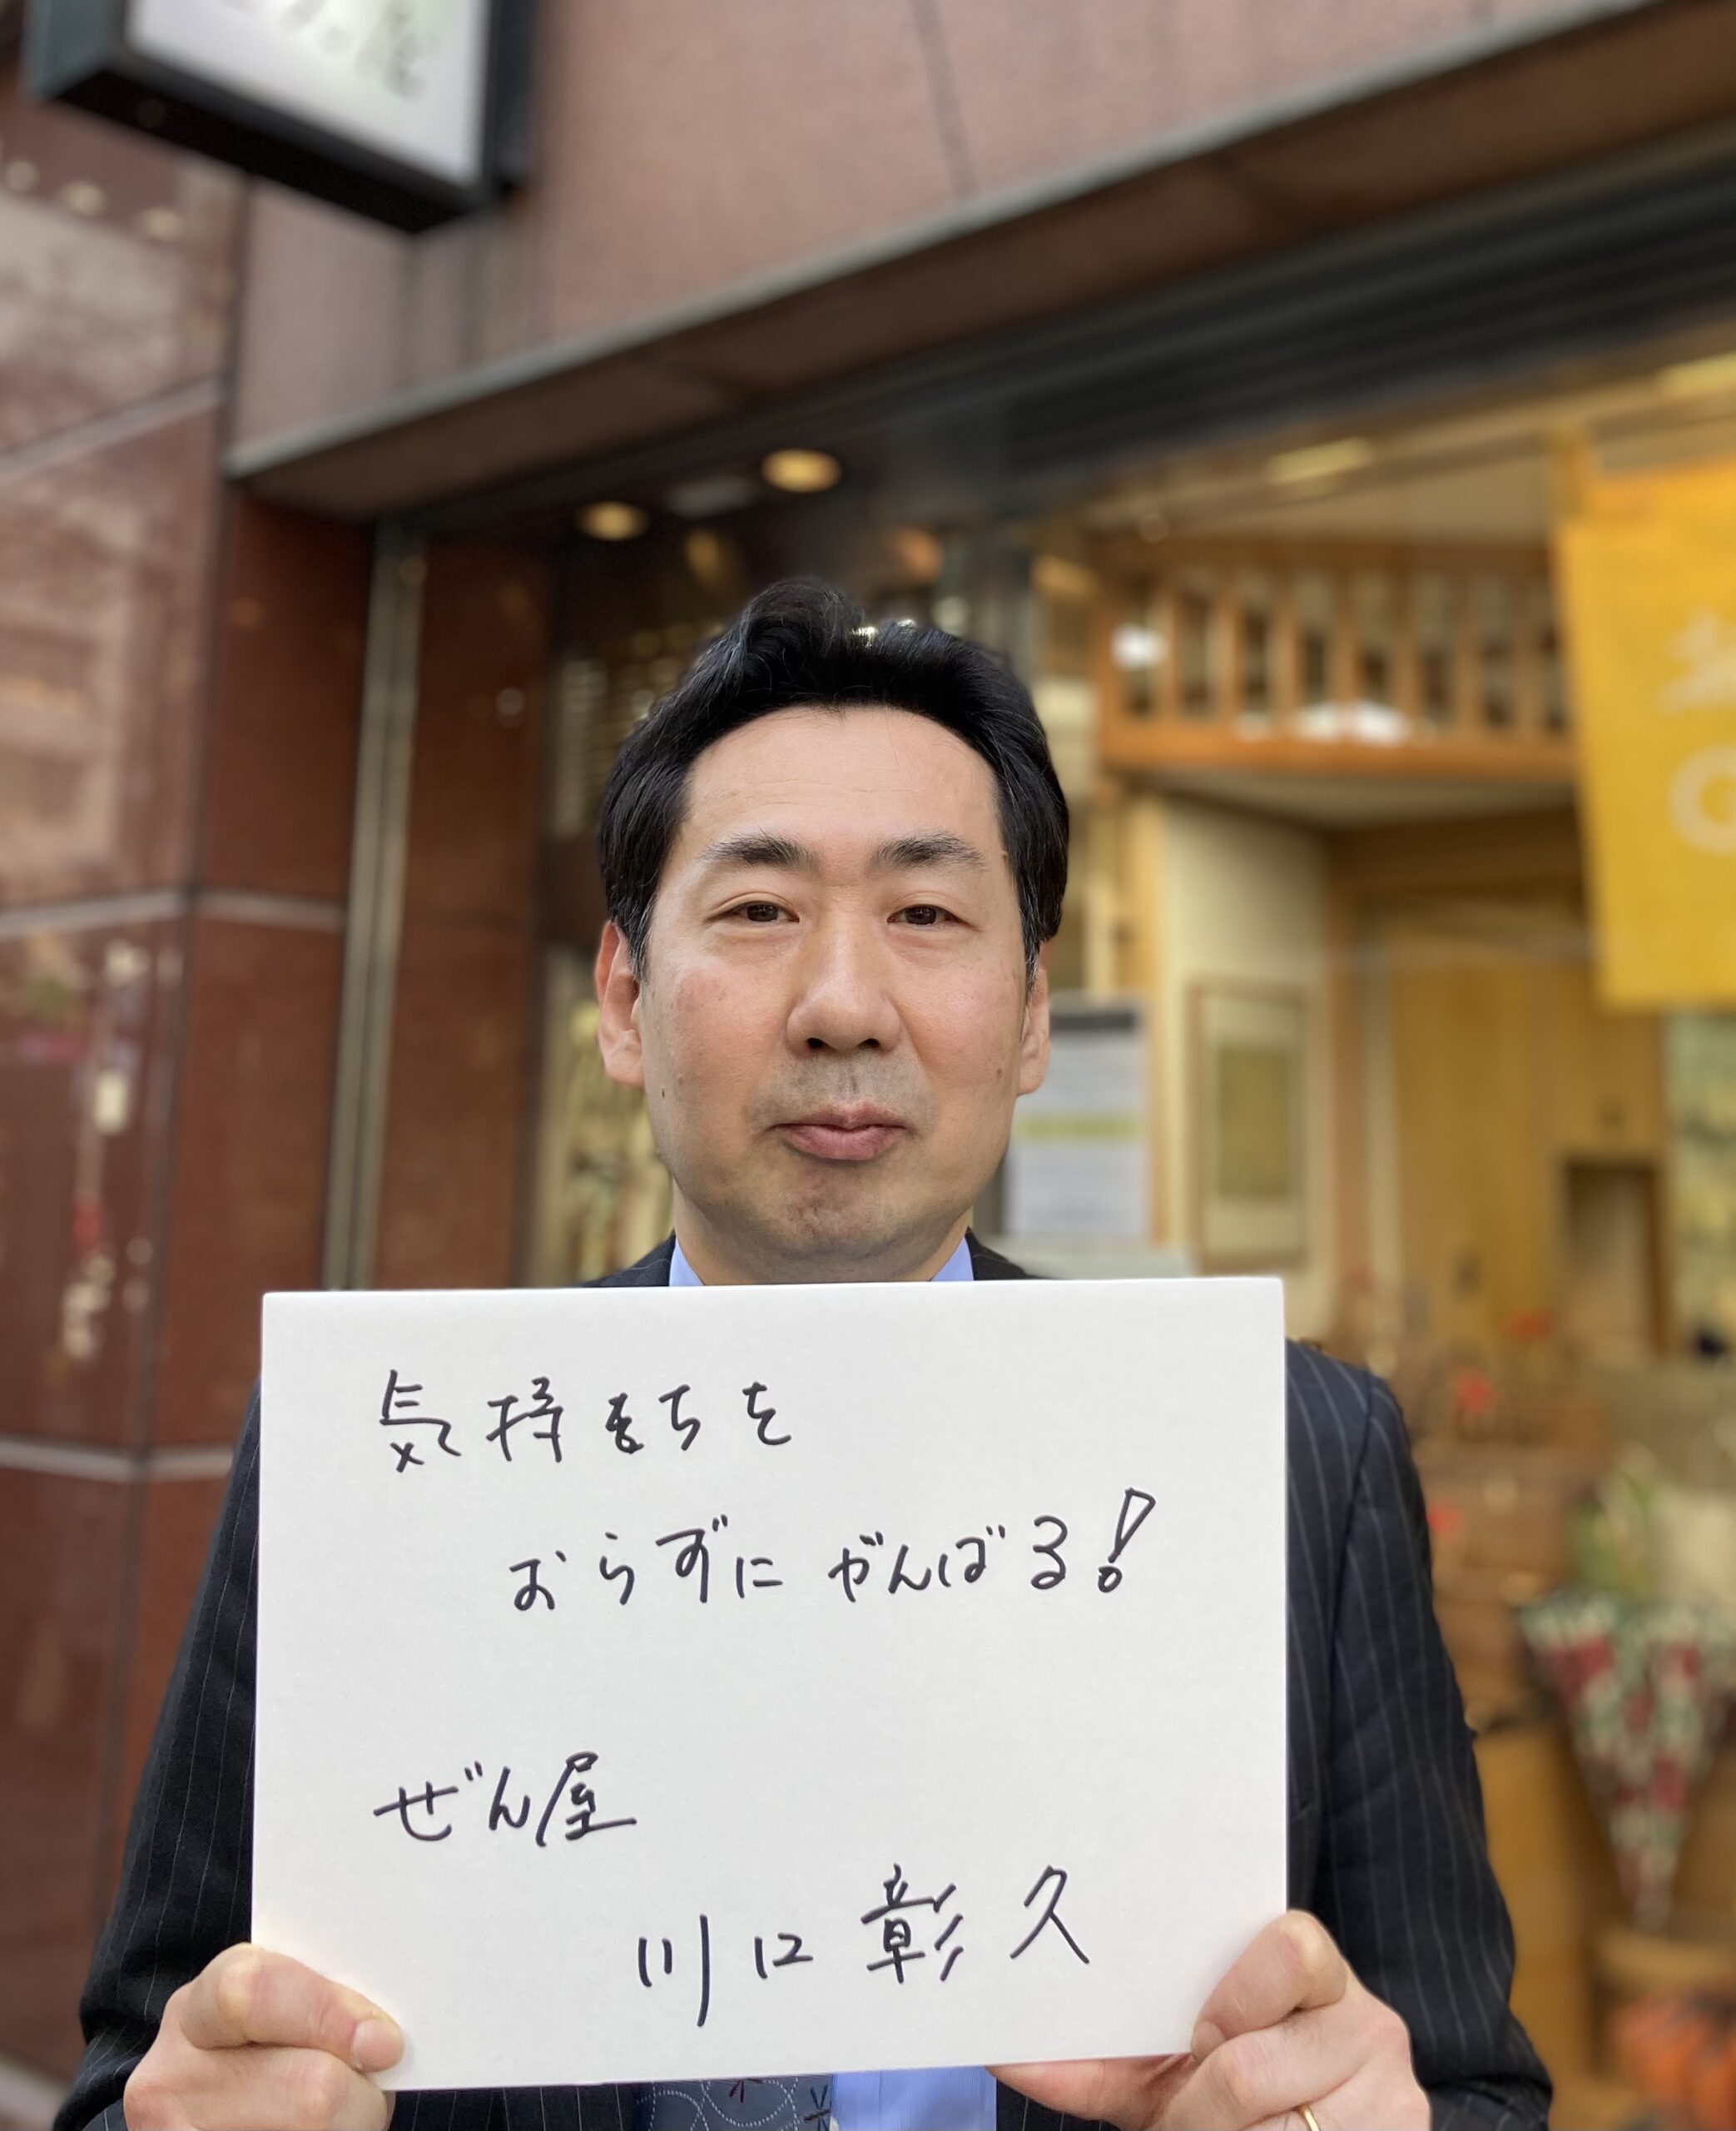 気持まちを
おらずにがんばる!
ぜん屋
川口彰久